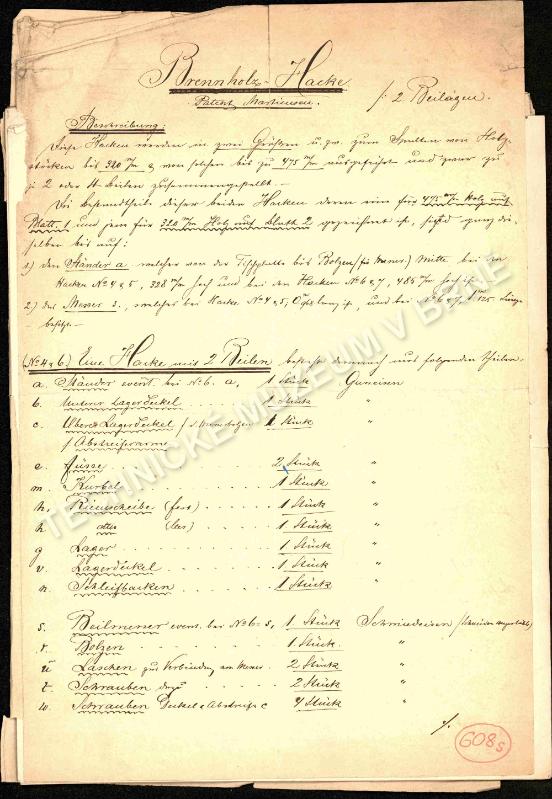 Brennholz-Hacke
Patent Martinsen.
/. 2 Beilagen.
Beschreibung:
Diese Hacken werden in zwei Größen u. zw. zum Spalten von Holz-
stöcken bis 320 m/m & von solchen bis zu 475 m/m ausgeführt und zwar zu
je 2 oder 4 Beilen zusammengestellt. –
Die Bestandtheile dieser beiden Hacken deren eine für 475 m/m Holz auf
Blatt 1 und jene für 320 m/m Holz auf Blatt 2 gezeichnet ist, sind ganz die-
selben bis auf:
1) den Ständer a welcher von der Tischplatte bis Bolzen Mitte bei den
Hacken No 4 & 5, 328 m/m hoch und bei den Hacken No 6 & 7, 485 m/m hoch ist.
2) das Messer s., welches bei Hacke No 4 & 5, lang ist, und bei No 6 & 7, 125 Länge
besitzt. –
(No 4 & 6.) Eine Hacke mit 2 Beilen besteht demnach aus folgenden Theilen:
a. Ständer event. bei No 6. a, 1 Stück Gusseisen
b. Unterer Lagerdeckel 1 Stück "
c. Oberer Lagerdeckel 1 Stück "
/ Abstreiferarme
e. Füsse 2 Stück "
m. Kurbel 1 Stück "
h, Riemscheibe (fest) 1 Stück "
h detto (los) 1 Stück "
g Lager 1 Stück "
v. Lagerdeckel 1 Stück "
n. Schleifbacken 1 Stück "
s. Beilmesser event. bei No 6: s, 1 Stück Schmiedeisen
r. Bolzen 1 Stück. "
u Laschen zur Verbindung am Messer 2 Stück "
t. Schrauben dazu 2 Stück "
w. Schrauben Deckel & Abstreifer c 4 Stück "
/.
608 s
TECHNICKÉ MUZEUM V BRNĚ